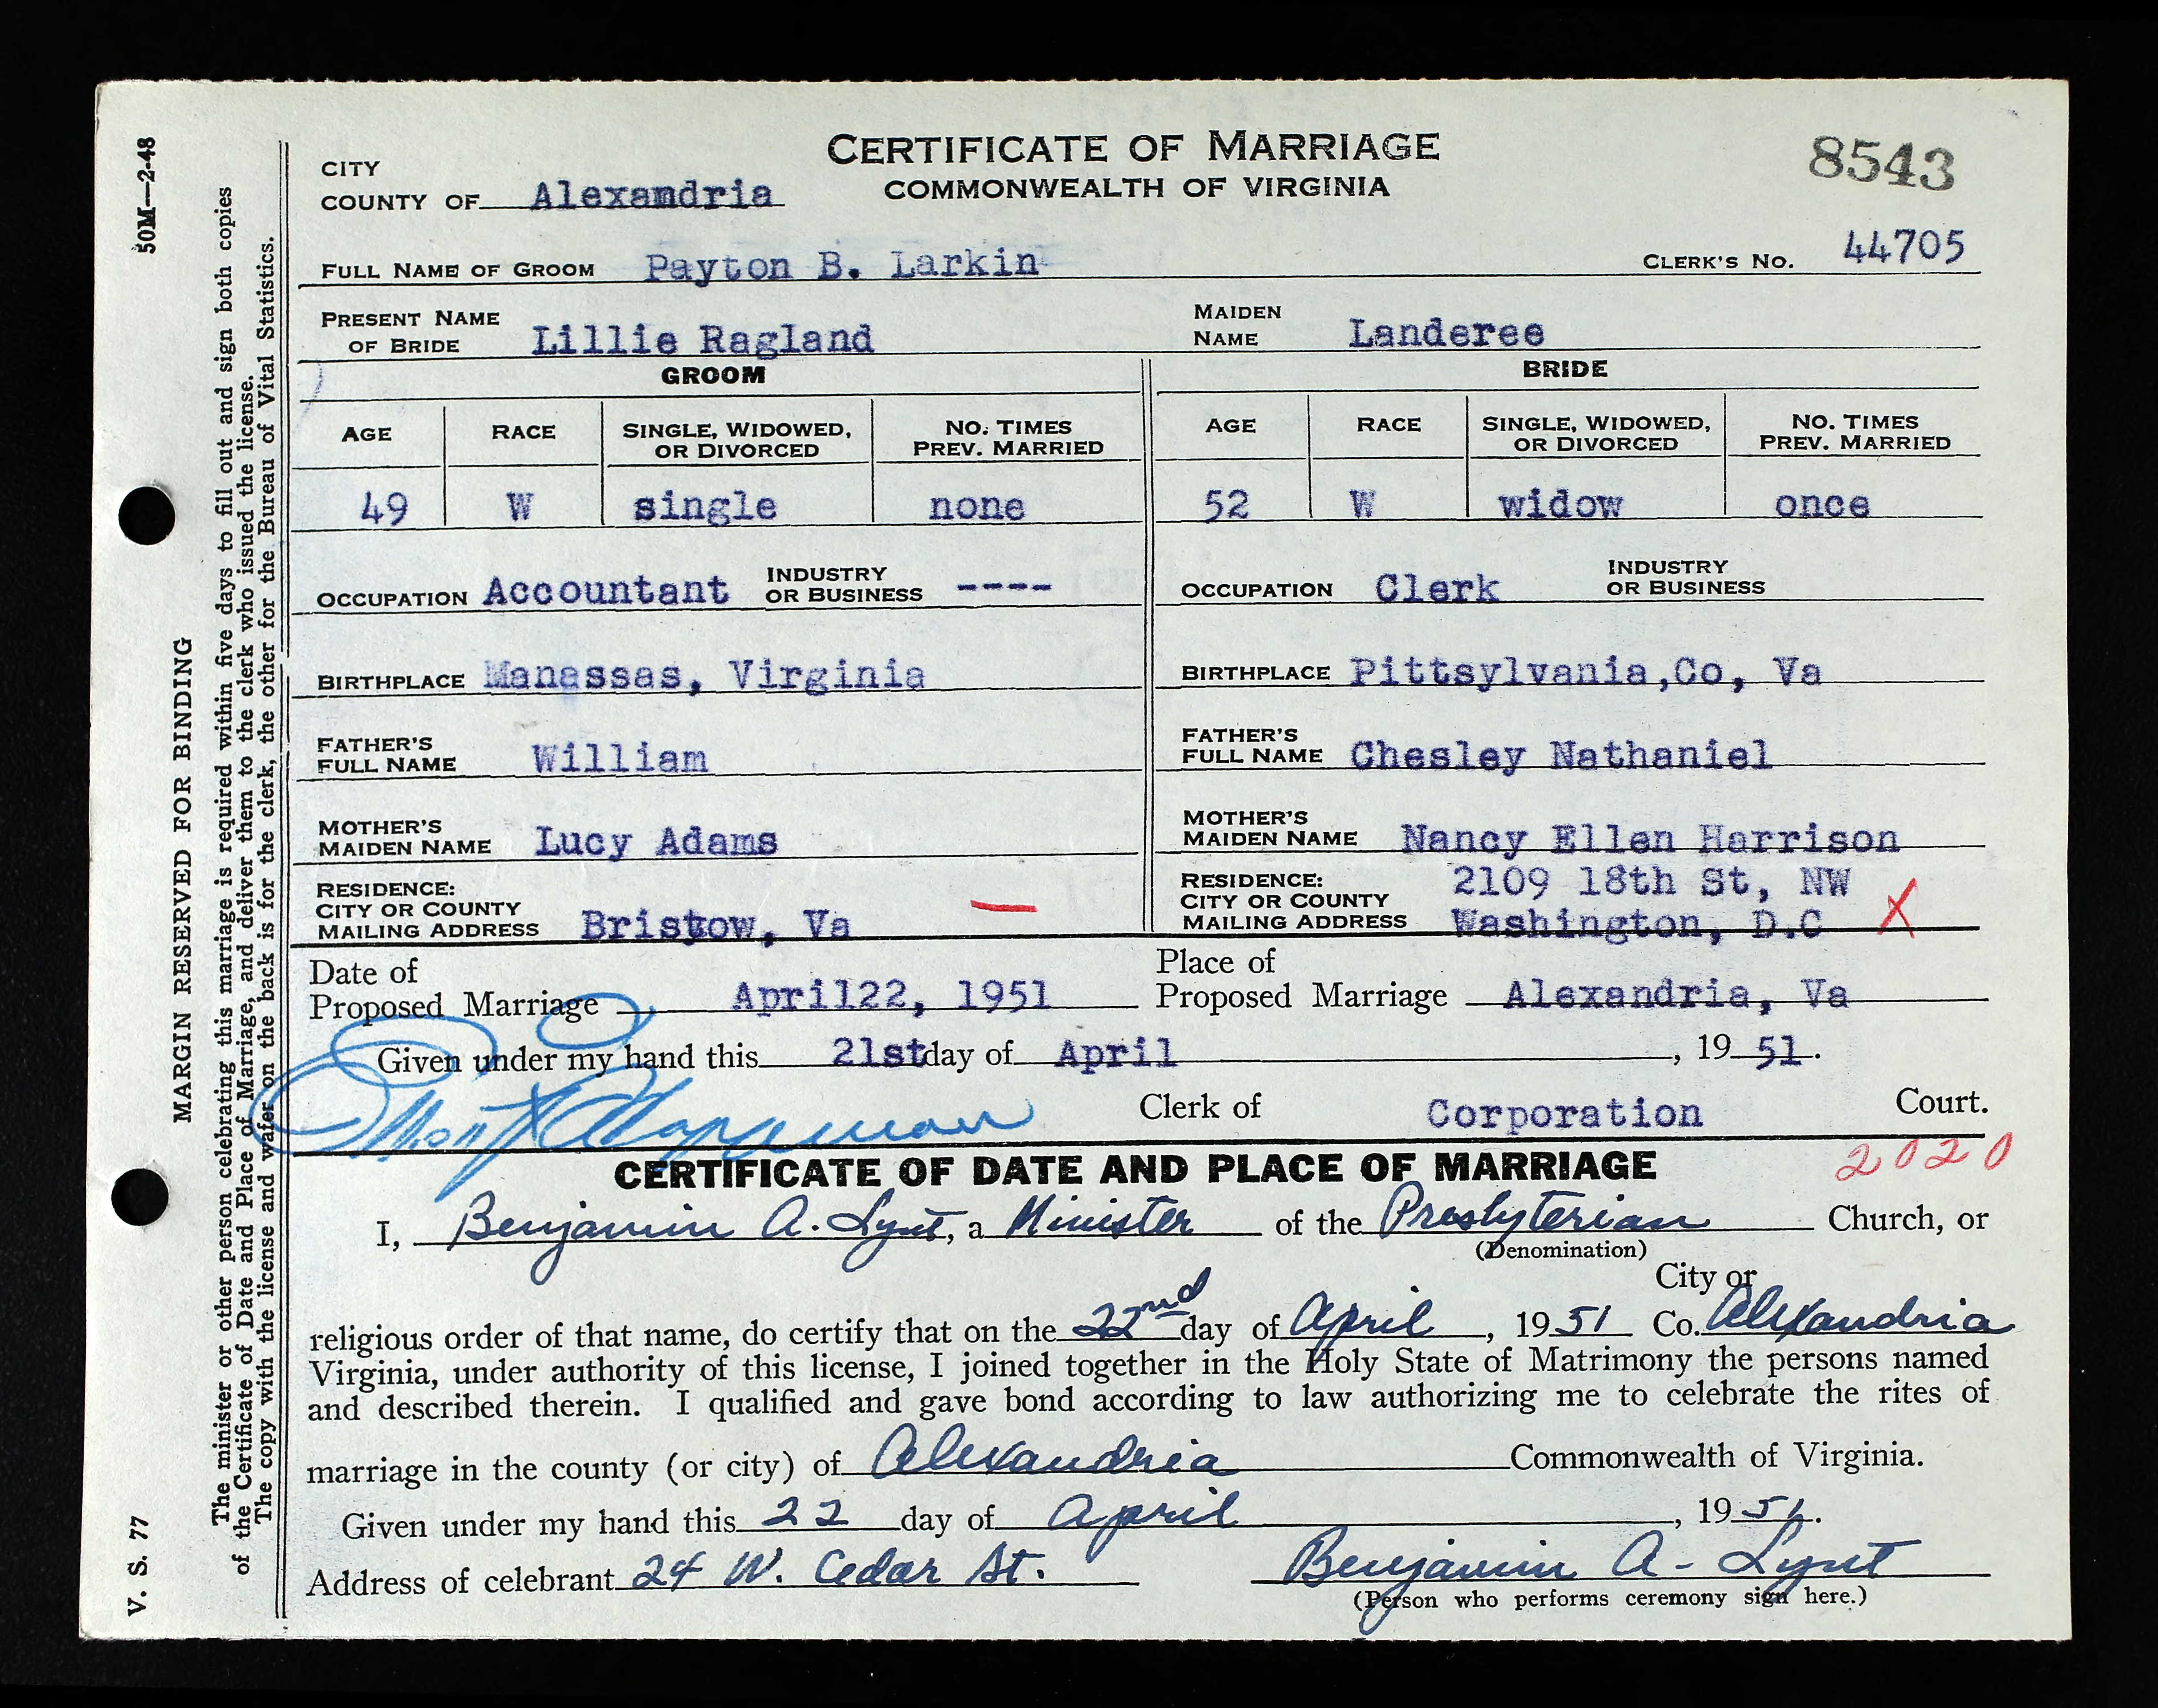 CERTIFICATE OF MARRIAGE
COMMONWEALTH OF VIRGINIA
8543
CITY
COUNTY OF Alexandria
FULL NAME OF GROOM Payton B. Larkin CLERK'S NO. 44705
PRESENT NAME OF BRIDE Lillie Ragland MAIDEN NAME Landeree
GROOM BRIDE
AGE RACE SINGLE, WIDOWED, OR DIVORCED NO. TIMES PREV. MARRIED AGE RACE SINGLE, WIDOWED, OR DIVORCED NO. TIMES PREV. MARRIED
49 W single none 52 W widow once
OCCUPATION Accountant INDUSTRY OR BUSINESS ---- OCCUPATION Clerk INDUSTRY OR BUSINESS
BIRTHPLACE Manassas, Virginia BIRTHPLACE Pittsylvania,Co, Va
FATHER'S FULL NAME William FATHER'S FULL NAME Chesley Nathaniel
MOTHER'S MAIDEN NAME Lucy Adams MOTHER'S MAIDEN NAME Nancy Ellen Harrison
RESIDENCE: CITY OR COUNTY MAILING ADDRESS Bristow, Va RESIDENCE: CITY OR COUNTY MAILING ADDRESS 2109 18th St, NW Washington, D.C X
Date of Proposed Marriage April22, 1951 Place of Proposed Marriage Alexandria, Va
Given under my hand this 21st day of April, 1951.
Clerk of Corporation Court.
2020
CERTIFICATE OF DATE AND PLACE OF MARRIAGE
I, Benjamin A. Lynt, a Minister of the Presbyterian Church, or
(Denomination)
City or
religious order of that name, do certify that on the 22nd day of April, 1951 Co. Alexandria
Virginia, under authority of this license, I joined together in the Holy State of Matrimony the persons named
and described therein. I qualified and gave bond according to law authorizing me to celebrate the rites of
marriage in the county (or city) of Alexandria Commonwealth of Virginia.
Given under my hand this 22 day of April, 1951.
Address of celebrant 24 W. Cedar St. Benjamin A - Lynt
(Person who performs ceremony sign here.)
50M—2-48
MARGIN RESERVED FOR BINDING
V. S. 77
The minister or other person celebrating this marriage is required within five days to fill out and sign both copies
of the Certificate of Date and Place of Marriage, and deliver them to the clerk who issued the license.
The copy with the license and wafer on the back is for the clerk, the other for the Bureau of Vital Statistics.